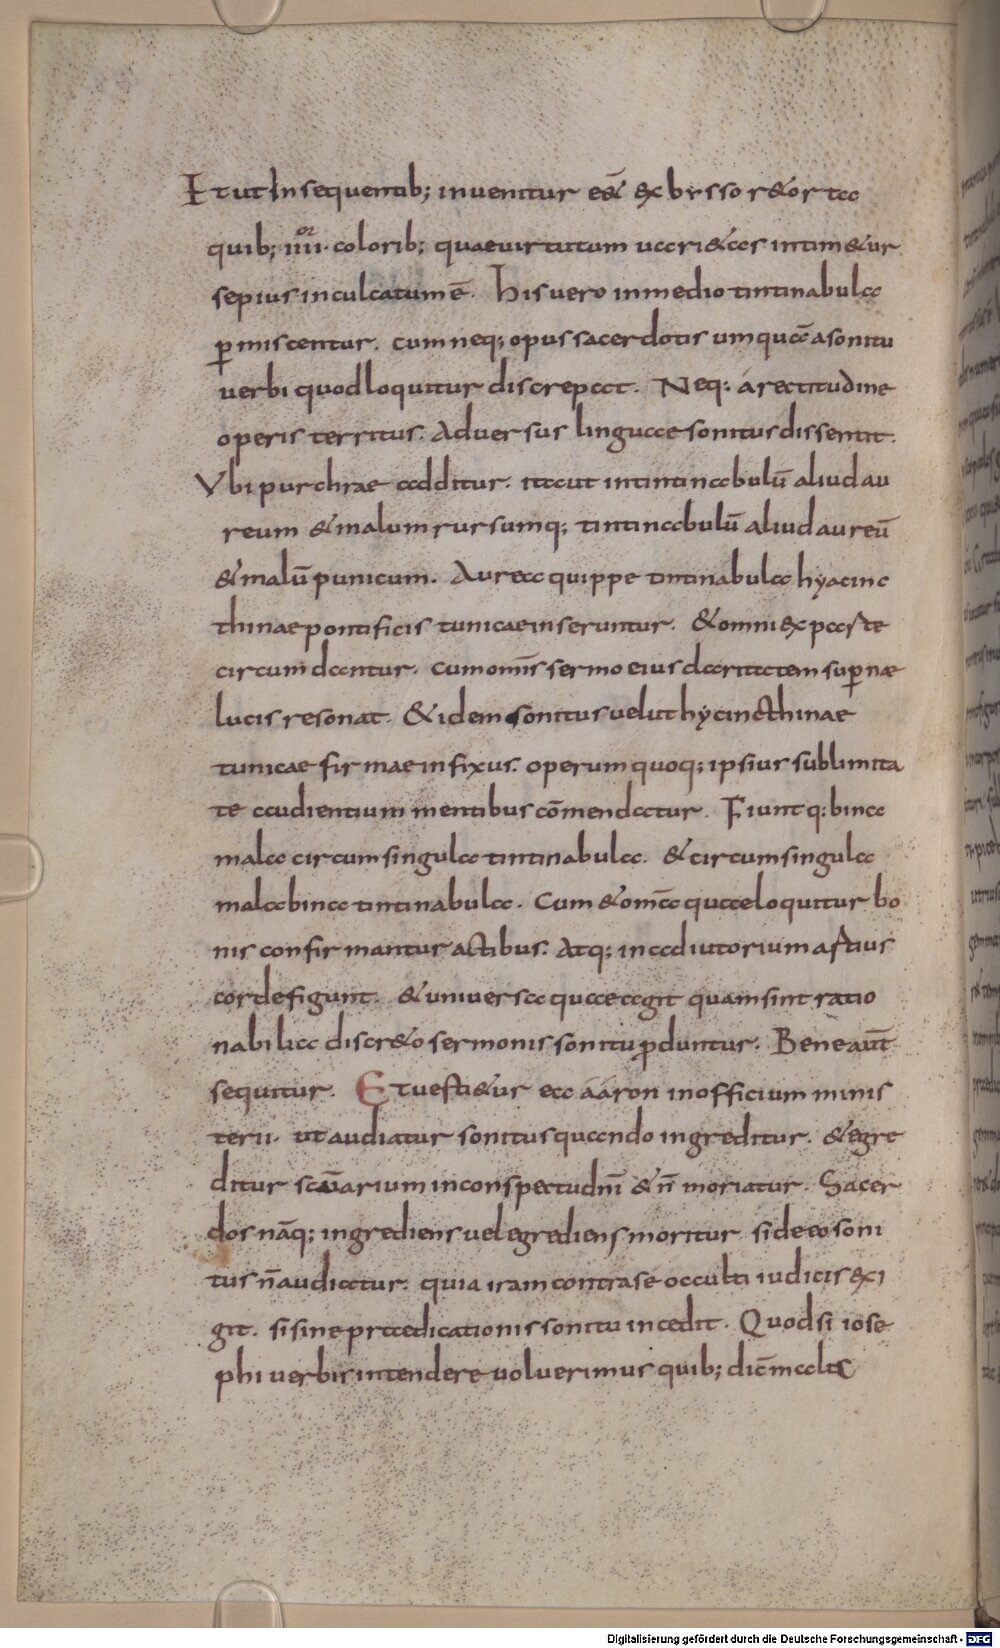 Et ut In sequentib; inuenitur eē& ex bysso r&orta
quib; iiii^or. colorib; quae uirtutum uari&as intim&ur
sepius inculcatum ē. His uero in medio tintinabula
p̄miscentur. cum neq; opus sacerdotis umquā a sonitu
uerbi quod loquitur discrepat. Neq; á rectitudine
operis territus. Aduersus linguae sonitus dissentit.
Vbi purchrae additur. ita ut intintinabulū aliud au
reum & malum rursumq; tintinabulū aliud aureū
& malū punicum. Aurea quippe tintinabula hyacinc
thinae pontificis tunicae inseruntur. & omni ex parte
circum dantur. cum omīs sermo eius daritatem sup̄nae
lucis resonat. & idem sonitus uelut hycincthinae
tunicae firmae infixus. operum quoq; ipsius sublimita
te audientium mentibus cōmendatur. Fiunt q: bina
mala circum singula tintinabula. & circum singula
mala bina tintinabula. Cum & omā quae loquitur bo
nis confirmantur actibus. Atq; in adiutorium astius
corde figunt. & uniuersa quae agit quam sint ratio
nabilia discr&o sermonis sonitu p̄duntur. Bene aūt
sequitur. Et uesti&ur ea aáron in officium minis
terii. ut audiatur sonitus quando ingreditur. & egre
ditur scūarium in conspectu dn̄i & n̄ moriatur. Sacer
dos nāq; ingrediens uel egrediens moritur si de eo soni
tus n̄ audiatur. quia iram contra sé occulti iudicis exi
git. si sine praedicationis sonitu incedit. Quod si iose
phi uerbis intendere uoluerimus quib; dic̄ malis
Digitalisierung gefördert durch die Deutsche Forschungsgemeinschaft - DFG